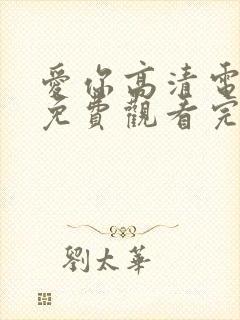 愛你高清電
免費觀看完
劉太華